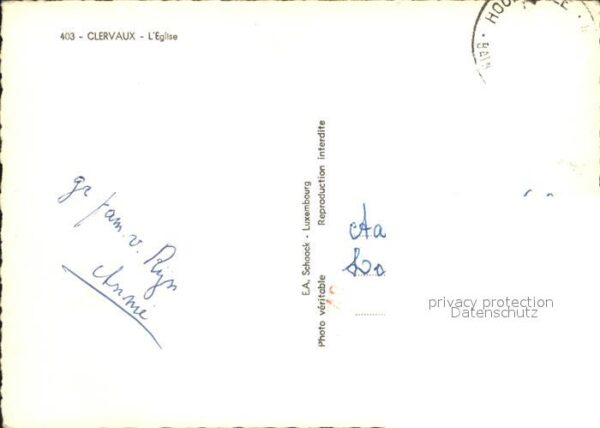 403 - CLERVAUX - L'Eglise
HOU
E
gr fam. v. Rijn
Annie
E.A. Schaack - Luxembourg
Photo véritable Reproduction interdite
Aa
privacy protection
Datenschutz